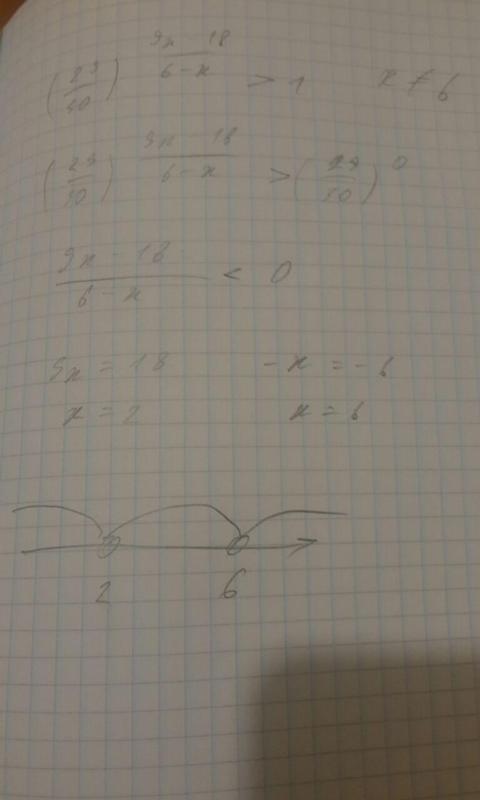 (29/40)^((9x - 18)/(6 - x)) > 1 x ≠ 6
(29/40)^((9x - 18)/(6 - x)) > (29/40)^0
(9x - 18)/(6 - x) < 0
9x = 18 -x = -6
x = 2 x = 6
2 6